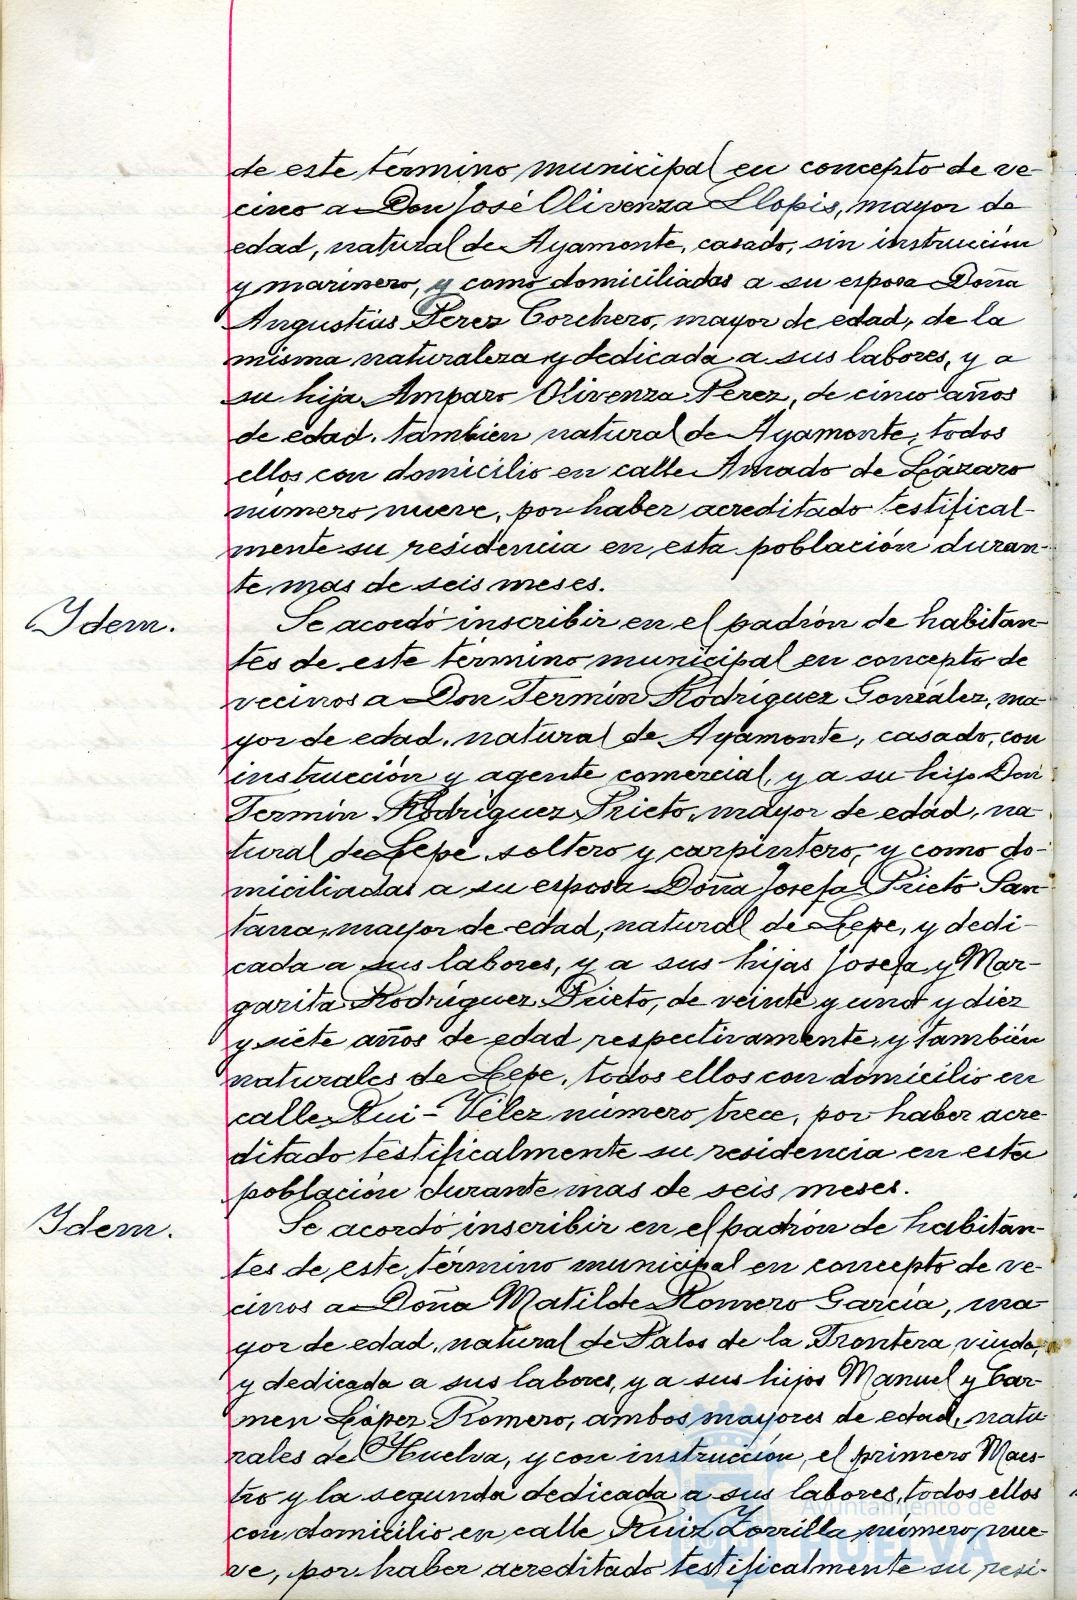 de este término municipal en concepto de ve-
cino a Don José Olivenza Llopis, mayor de
edad, natural de Ayamonte, casado, sin instrucción
y marinero, y como domiciliadas a su esposa Doña
Angustias Perez Corchero, mayor de edad, de la
misma naturaleza y dedicada a sus labores, y a
su hija Amparo Olivenza Pérez, de cinco años
de edad, también natural de Ayamonte, todos
ellos con domicilio en calle Amado de Lázaro
número nueve, por haber acreditado testifical-
mente su residencia en esta población duran-
te mas de seis meses.
Idem.
Se acordó inscribir en el padrón de habitan-
tes de este término municipal en concepto de
vecinos a Don Fermín Rodríguez González, ma-
yor de edad, natural de Ayamonte, casado, con
instrucción y agente comercial, y a su hijo Don
Fermín Rodríguez Prieto, mayor de edad, na-
tural de Lepe, soltero y carpintero, y como do-
miciliadas a su esposa Doña Josefa Prieto San-
tana, mayor de edad, natural de Lepe, y dedi-
cada a sus labores, y a sus hijas Josefa y Mar-
garita Rodríguez Prieto, de veinte y una y diez
y siete años de edad respectivamente, y también
naturales de Lepe, todos ellos con domicilio en
calle Rui-Vélez número trece, por haber acre-
ditado testificalmente su residencia en esta
población durante mas de seis meses.
Idem.
Se acordó inscribir en el padrón de habitan-
tes de este término municipal en concepto de ve-
cinos a Doña Matilde Romero García, ma-
yor de edad, natural de Palos de la Frontera, viuda,
y dedicada a sus labores, y a sus hijos Manuel y Car-
men López Romero, ambos mayores de edad, natu-
rales de Huelva, y con instrucción, el primero Maes-
tro y la segunda dedicada a sus labores, todos ellos
con domicilio en calle Ruiz Zorrilla número nue-
ve, por haber acreditado testificalmente su resi-
Ayuntamiento de
HUELVA